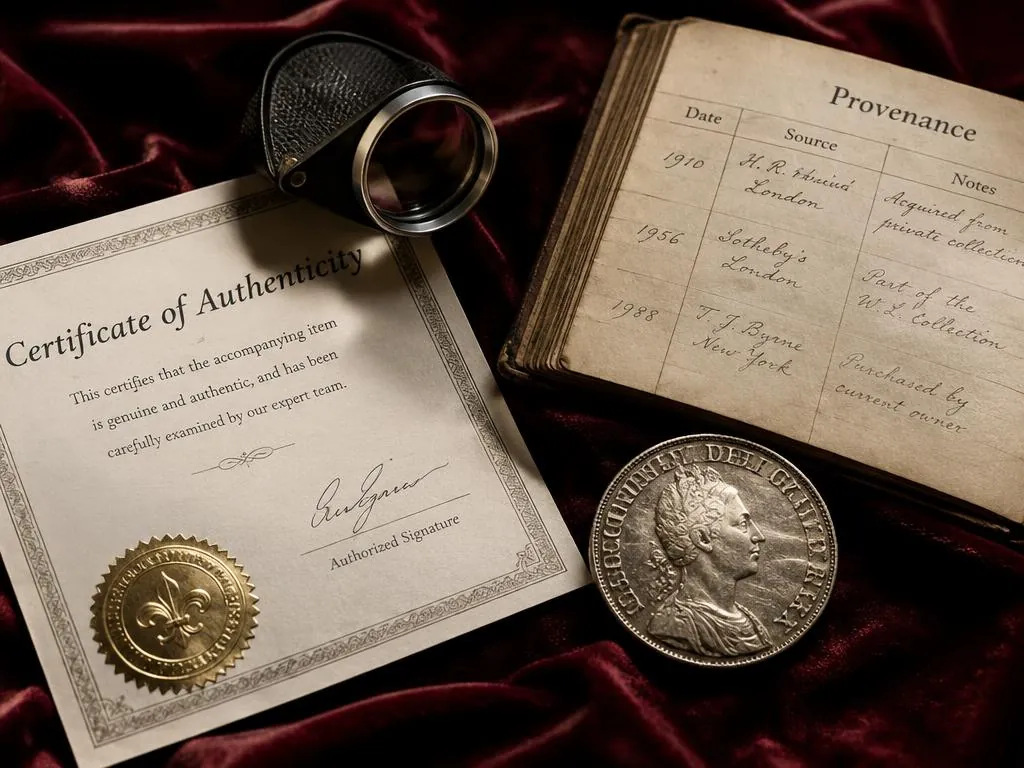 Certificate of Authenticity
This certifies that the accompanying item
is genuine and authentic, and has been
carefully examined by our expert team.
Authorized Signature
Provenance
Date Source Notes
1910
H. R.
London
Acquired from
private collection
1956
Sotheby's
London
Part of the
W. L. Collection
1988
T. J. Byrne
New York
Purchased by
current owner